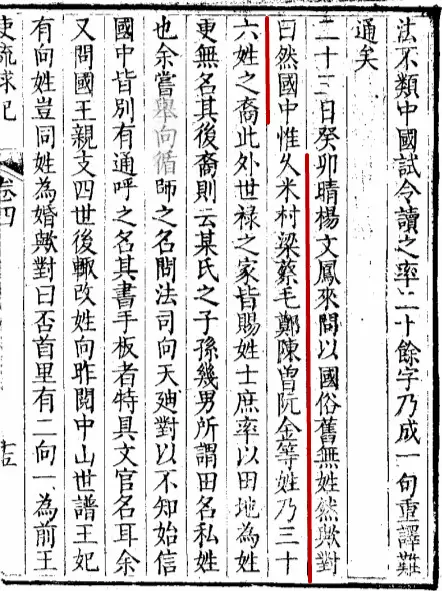 法不類中國試令讀之率二十餘字乃成一句重譯難
通矣
二十三日癸卯晴楊文鳳來問以國俗舊無姓然歟對
曰然國中惟久米村梁蔡毛鄭陳曾阮金等姓乃三十
六姓之裔此外世祿之家皆賜姓士庶率以田地為姓
更無名其後裔則云某氏之子孫幾男所謂田名私姓
也余嘗舉向循師之名問法司向天迪對以不知始信
國中皆別有通呼之名其書手板者特具文官名耳余
又問國王親支四世後輙改姓向昨閱中山世譜王妃
有向姓豈同姓為婚歟對曰否首里有二向一為前王
使琉球記
卷四
十五